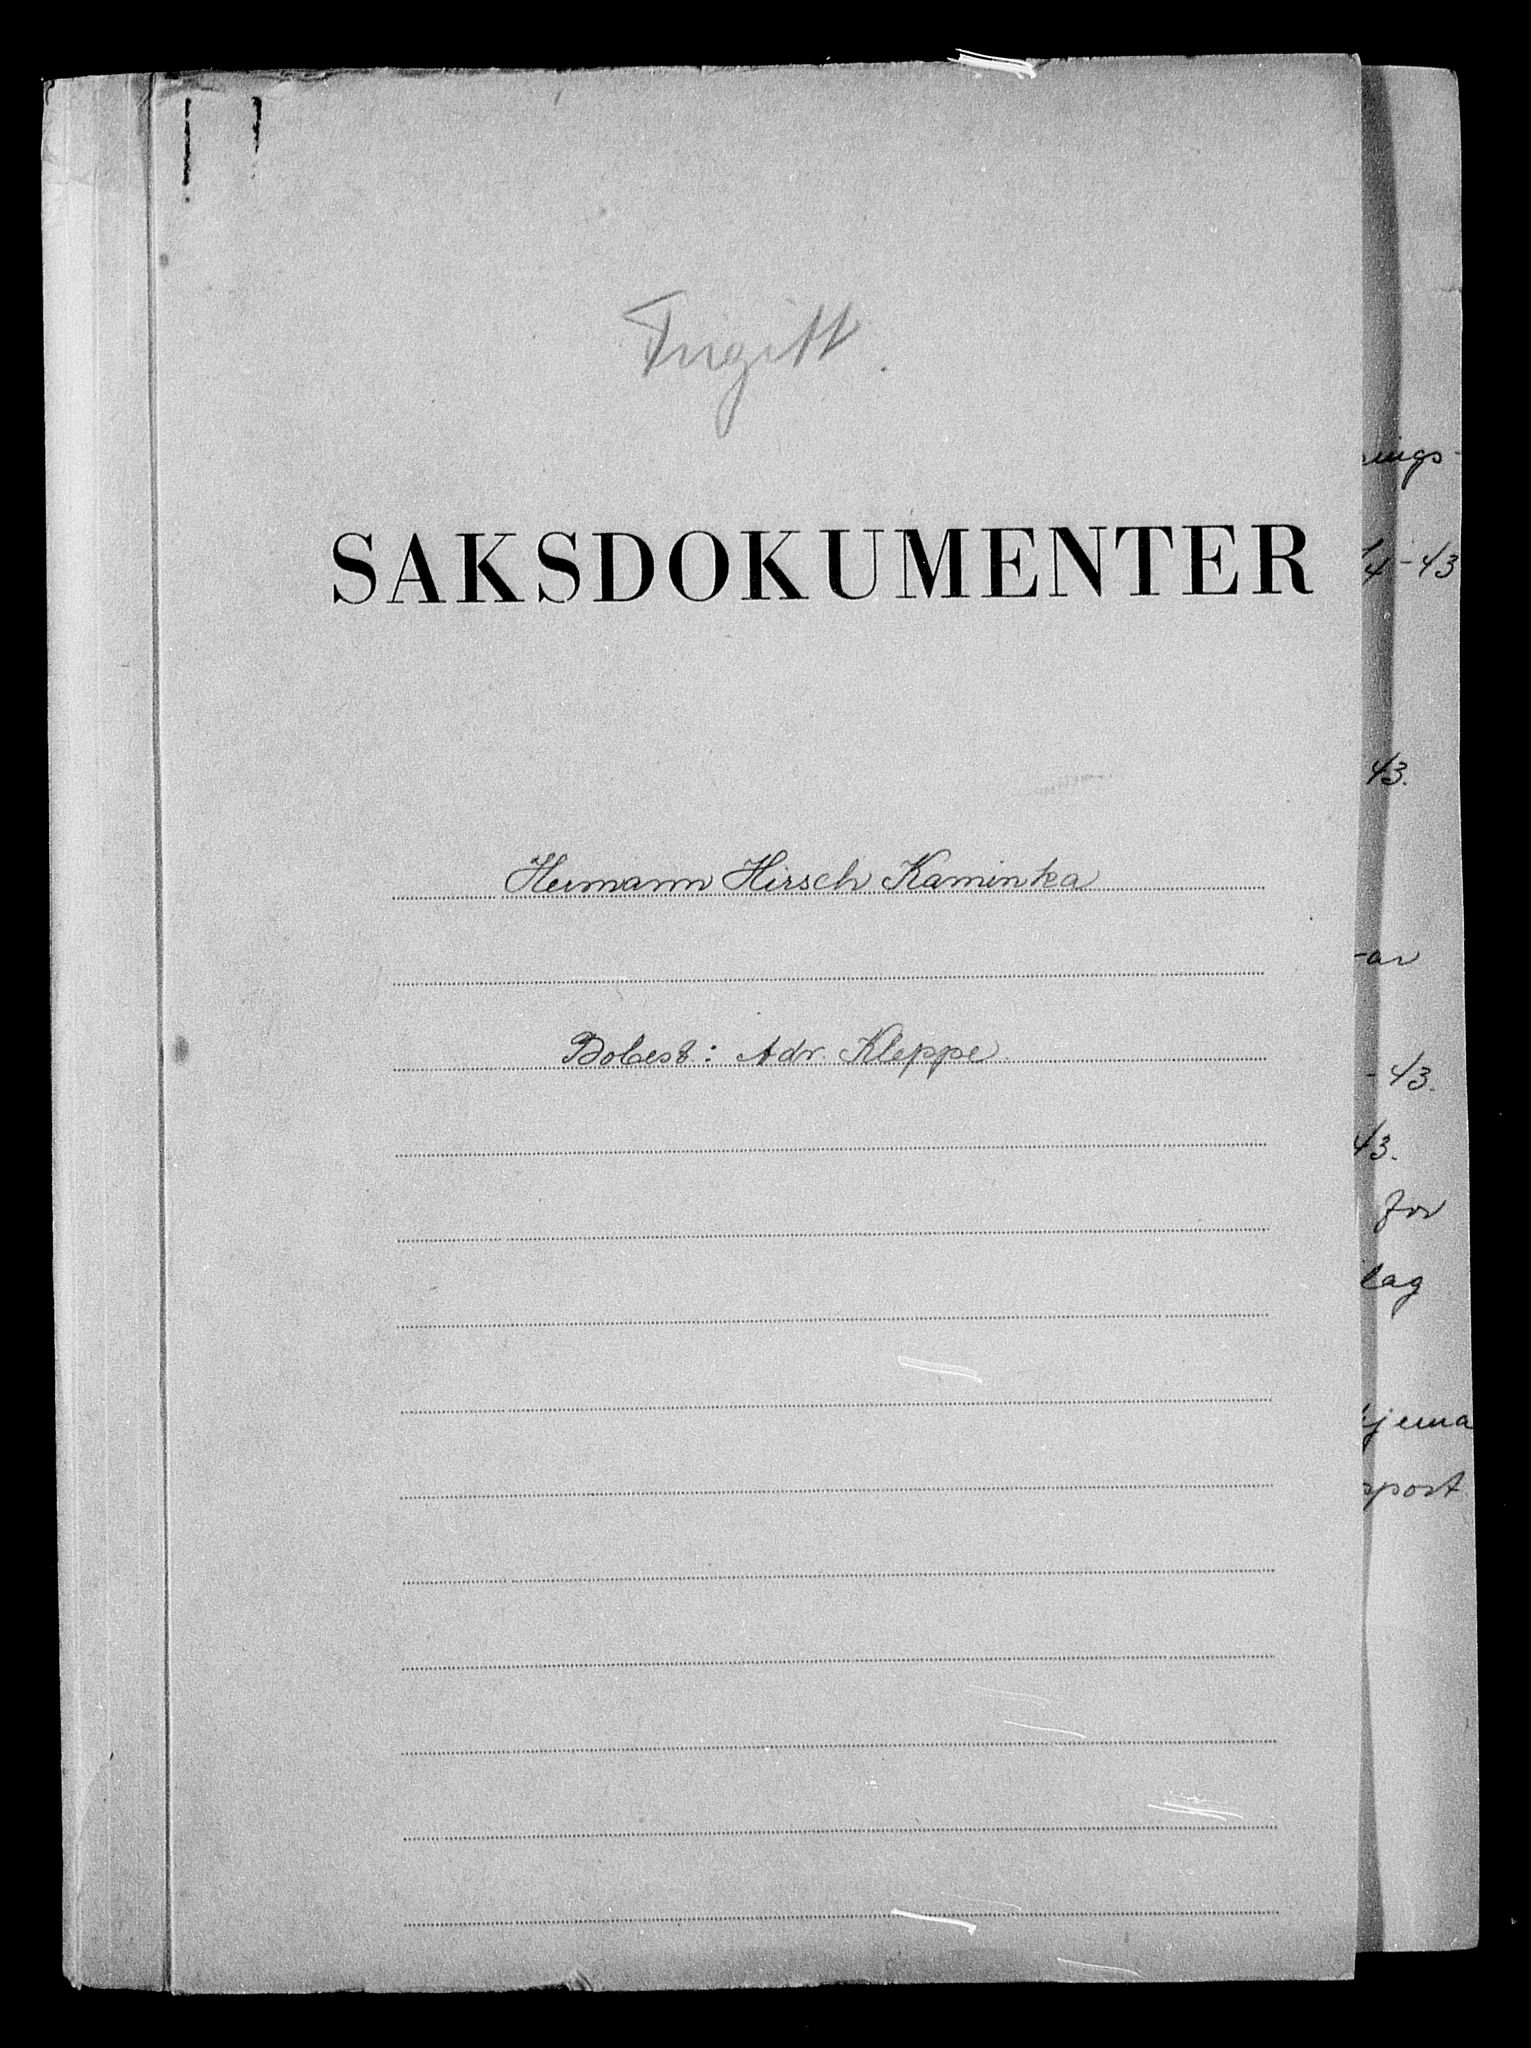 Frigitt.
SAKSDOKUMENTER
Hermann Hirsch Kaminka
Bobest: Adr. Kleppe
nings-
/4-43
43.
-ar
-43.
43.
for
lag
kjema
pport